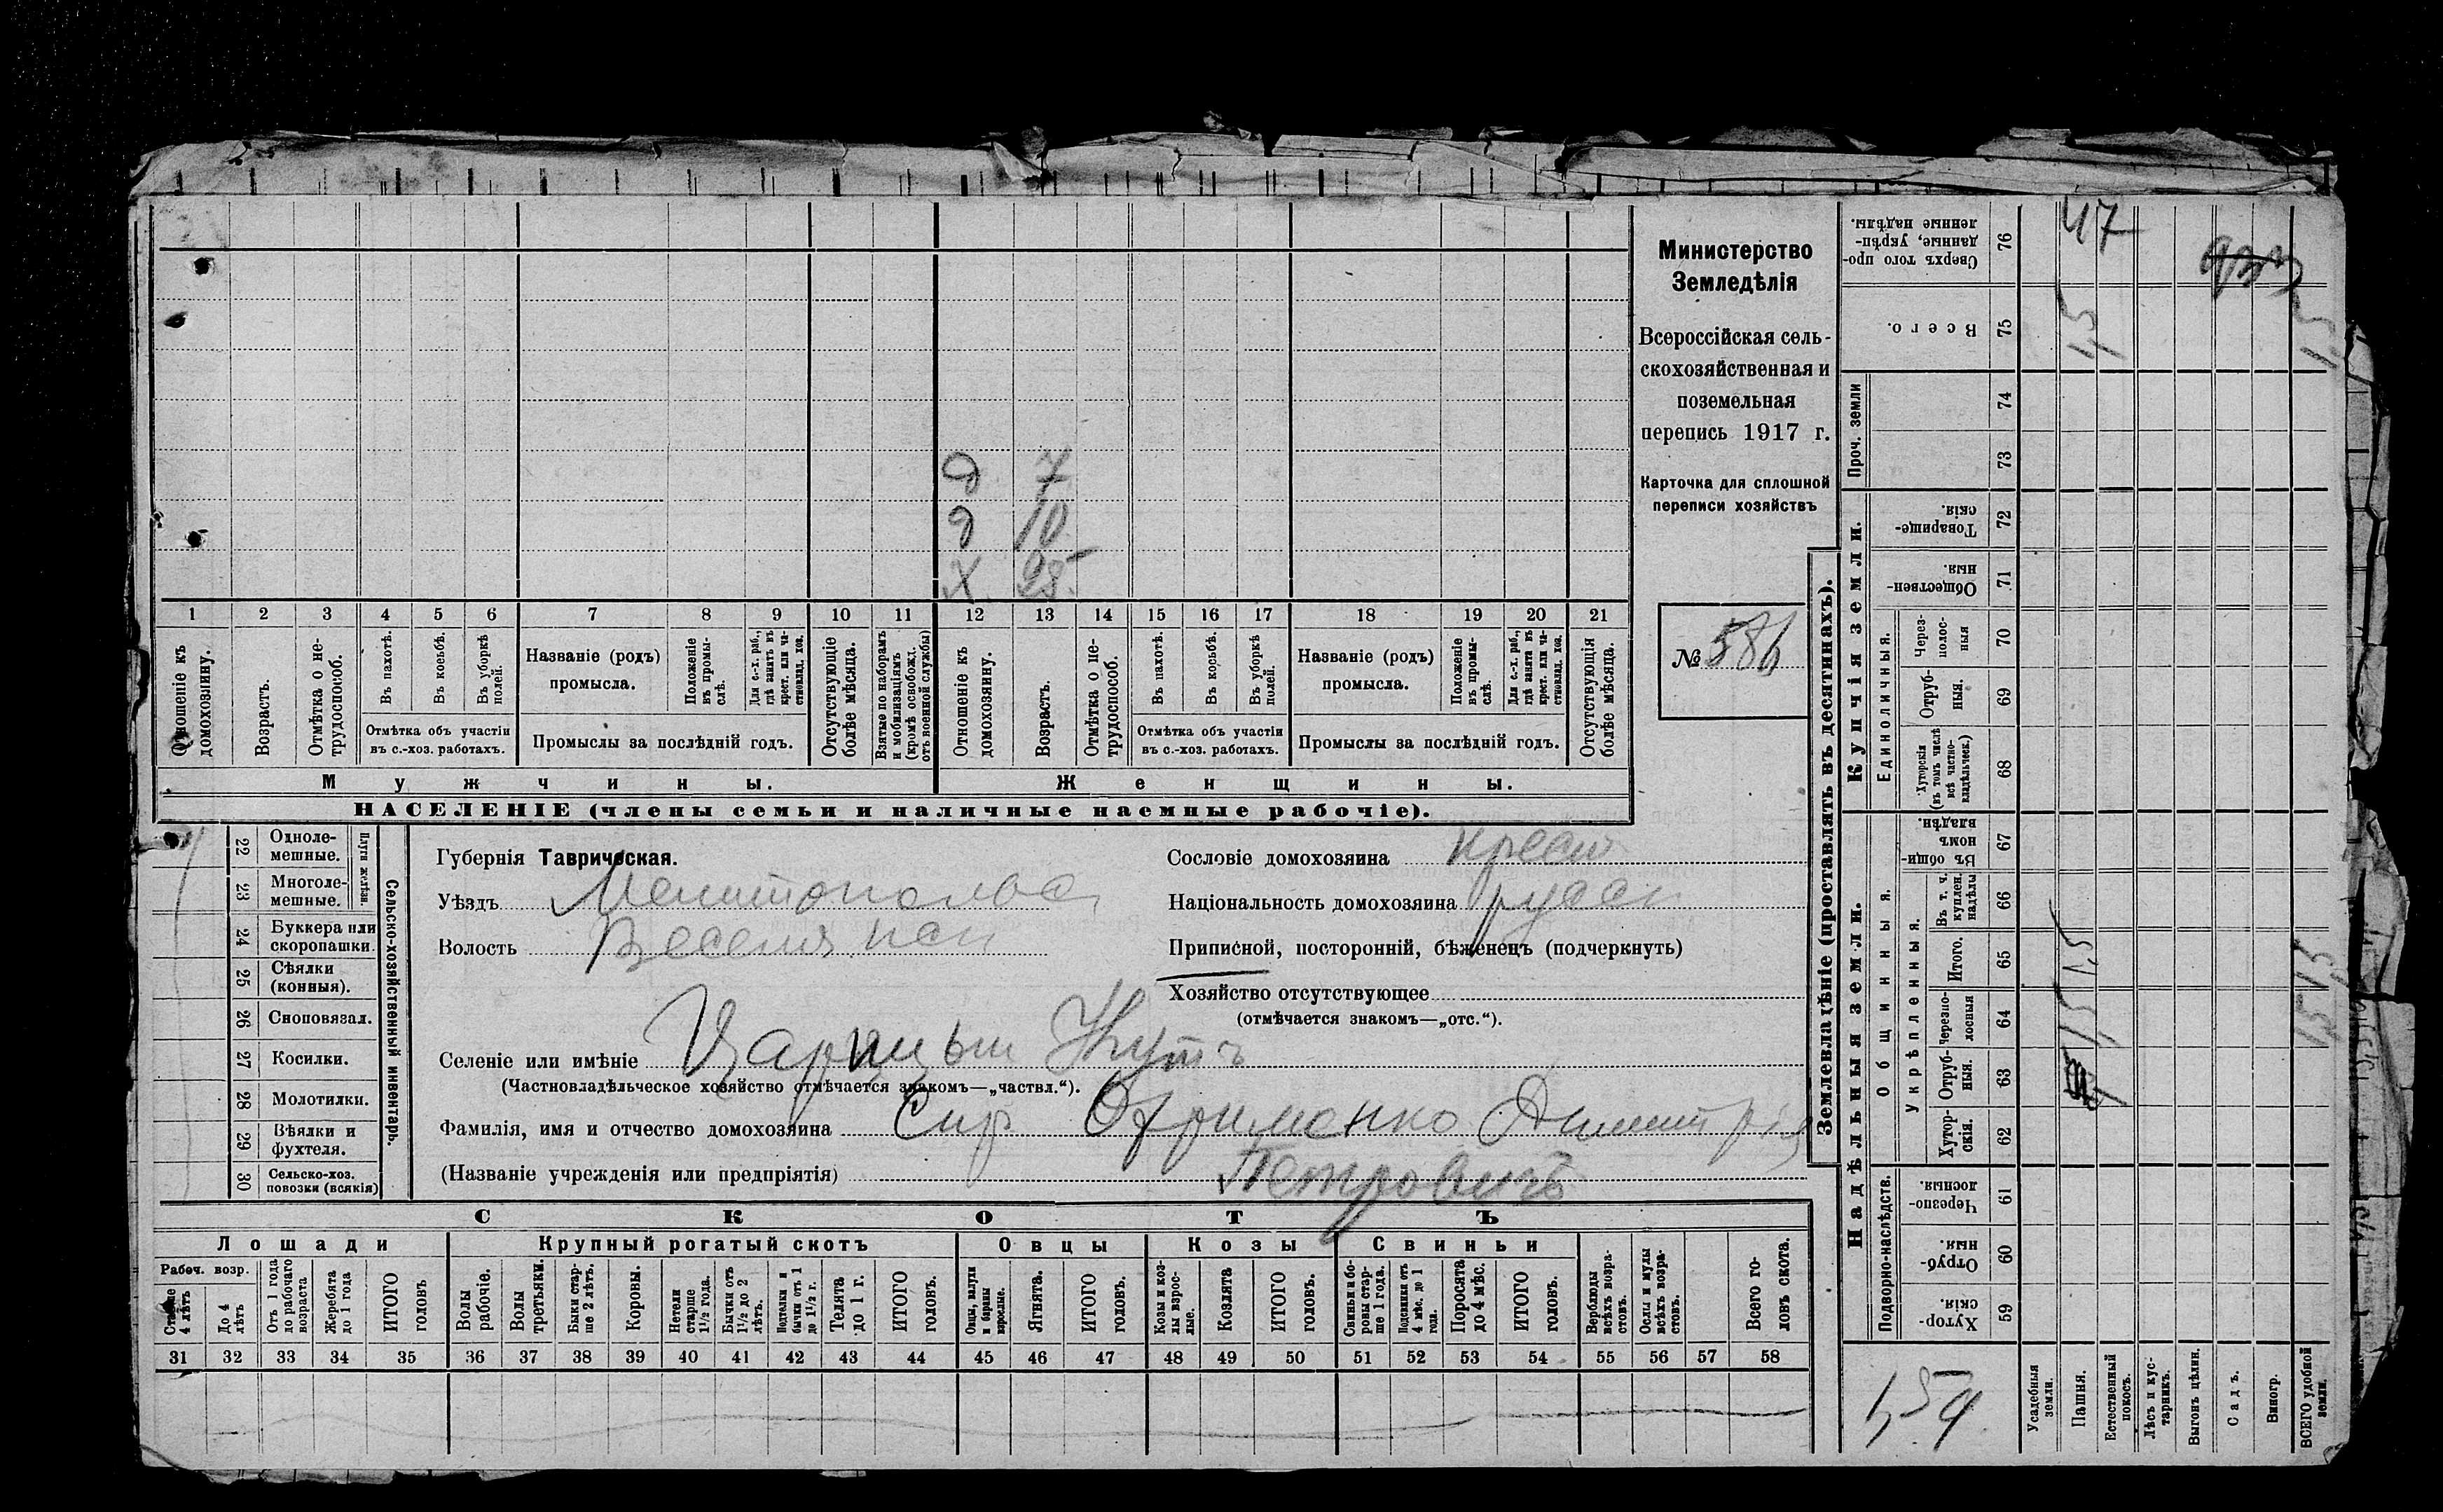 Министерство
Земледѣлія
Всероссійская сель-
скохозяйственная и
поземельная
перепись 1917 г.
Карточка для сплошной
переписи хозяйствъ
№ 586
д 7
д 10
х 25
1 2 3 4 5 6 7 8 9 10 11 12 13 14 15 16 17 18 19 20 21
Отношеніе къ домохозяину.
Возрастъ.
Отмѣтка о не-трудоспособ.
Въ пахотѣ.
Въ косьбѣ.
Въ уборкѣ полей.
Отмѣтка объ участіи
въ с.-хоз. работахъ.
Названіе (родъ)
промысла.
Положеніе въ промы-слѣ.
Для с.-х. раб., гдѣ занятъ въ крест. или ча-стновлад. хоз.
Промыслы за послѣдній годъ.
Отсутствующіе болѣе мѣсяца.
Взятые по наборамъ и мобилизаціямъ (кромѣ освобожд. отъ военной службы)
Отношеніе къ домохозяину.
Возрастъ.
Отмѣтка о не-трудоспособ.
Въ пахотѣ.
Въ косьбѣ.
Въ уборкѣ полей.
Отмѣтка объ участіи
въ с.-хоз. работахъ.
Названіе (родъ)
промысла.
Положеніе въ промы-слѣ.
Для с.-х. раб., гдѣ занята въ крест. или ча-стновлад. хоз.
Промыслы за послѣдній годъ.
Отсутствующія болѣе мѣсяца.
Мужчины.
Женщины.
НАСЕЛЕНІЕ (члены семьи и наличные наемные рабочіе).
22 Одноле-мешные.
23 Многоле-мешные.
Плуги желѣзн.
24 Буккера или скоропашки.
25 Сѣялки (конныя).
26 Сноповязал.
27 Косилки.
28 Молотилки.
29 Вѣялки и фухтеля.
30 Сельско-хоз. повозки (всякія)
Сельско-хозяйственный инвентарь.
Губернія Таврическая.
Уѣздъ
Волость
Сословіе домохозяина крест
Національность домохозяина русск
Приписной, посторонній, бѣженецъ (подчеркнуть)
Хозяйство отсутствующее
(отмѣчается знакомъ—„отс.“).
Селеніе или имѣніе Царицын Кутъ
(Частновладѣльческое хозяйство отмѣчается знакомъ—„частвл.“).
Фамилія, имя и отчество домохозяина
(Названіе учрежденія или предпріятія) Петровичъ
СКОТЪ
Лошади
Крупный рогатый скотъ
Овцы
Козы
Свиньи
Рабоч. возр.
Старше 4 лѣтъ
До 4 лѣтъ
Отъ 1 года до рабочаго возраста
Жеребята до 1 года
ИТОГО головъ
Волы рабочіе.
Волы третьяки.
Быки стар-ше 2 лѣтъ.
Коровы.
Нетели старше 1½ года.
Бычки отъ 1½ до 2 лѣтъ.
Подтелки и бычки отъ 1 до 1½ г.
Телята до 1 г.
ИТОГО головъ.
Овцы, валухи и бараны взрослые.
Ягнята.
ИТОГО головъ.
Козы и коз-лы взрос-лые.
Козлята
ИТОГО головъ.
Свиньи и бо-ровы стар-ше 1 года.
Подсвинки отъ 4 мѣс. до 1 года.
Поросята до 4 мѣс.
ИТОГО головъ.
Верблюды всѣхъ возра-стовъ.
Ослы и мулы всѣхъ возра-стовъ.
Всего го-ловъ скота.
31 32 33 34 35 36 37 38 39 40 41 42 43 44 45 46 47 48 49 50 51 52 53 54 55 56 57 58
Землевладѣніе (проставлять въ десятинахъ).
Купчія земли.
Проч. земли
Единоличныя.
Надѣльныя земли.
Общинныя.
Укрѣпленныя.
Подворно-наслѣдств.
76 Сверхъ того про-данные, укрѣп-ленные надѣлы.
47
75 Всего.
15
74
73
72 Товарище-скія.
71 Обществен-ныя.
70 Через-полос-ныя
69 Отруб-ныя.
68 Хуторскія (въ томъ числѣ всѣ частно-владѣльческ.)
67 Въ общи-номъ владѣн.
66 Въ т. ч. куплен. надѣлы
65 Итого.
64 Черезпо-лосныя
63 Отруб-ныя.
62 Хутор-скія.
61 Черезпо-лосныя.
60 Отруб-ныя.
59 Хутор-скія.
Усадебныя земли.
Пашня.
Естественный покосъ.
Лѣсъ и кус-тарникъ.
Выгонъ цѣлин.
Садъ.
Виногр.
ВСЕГО удобной земли.